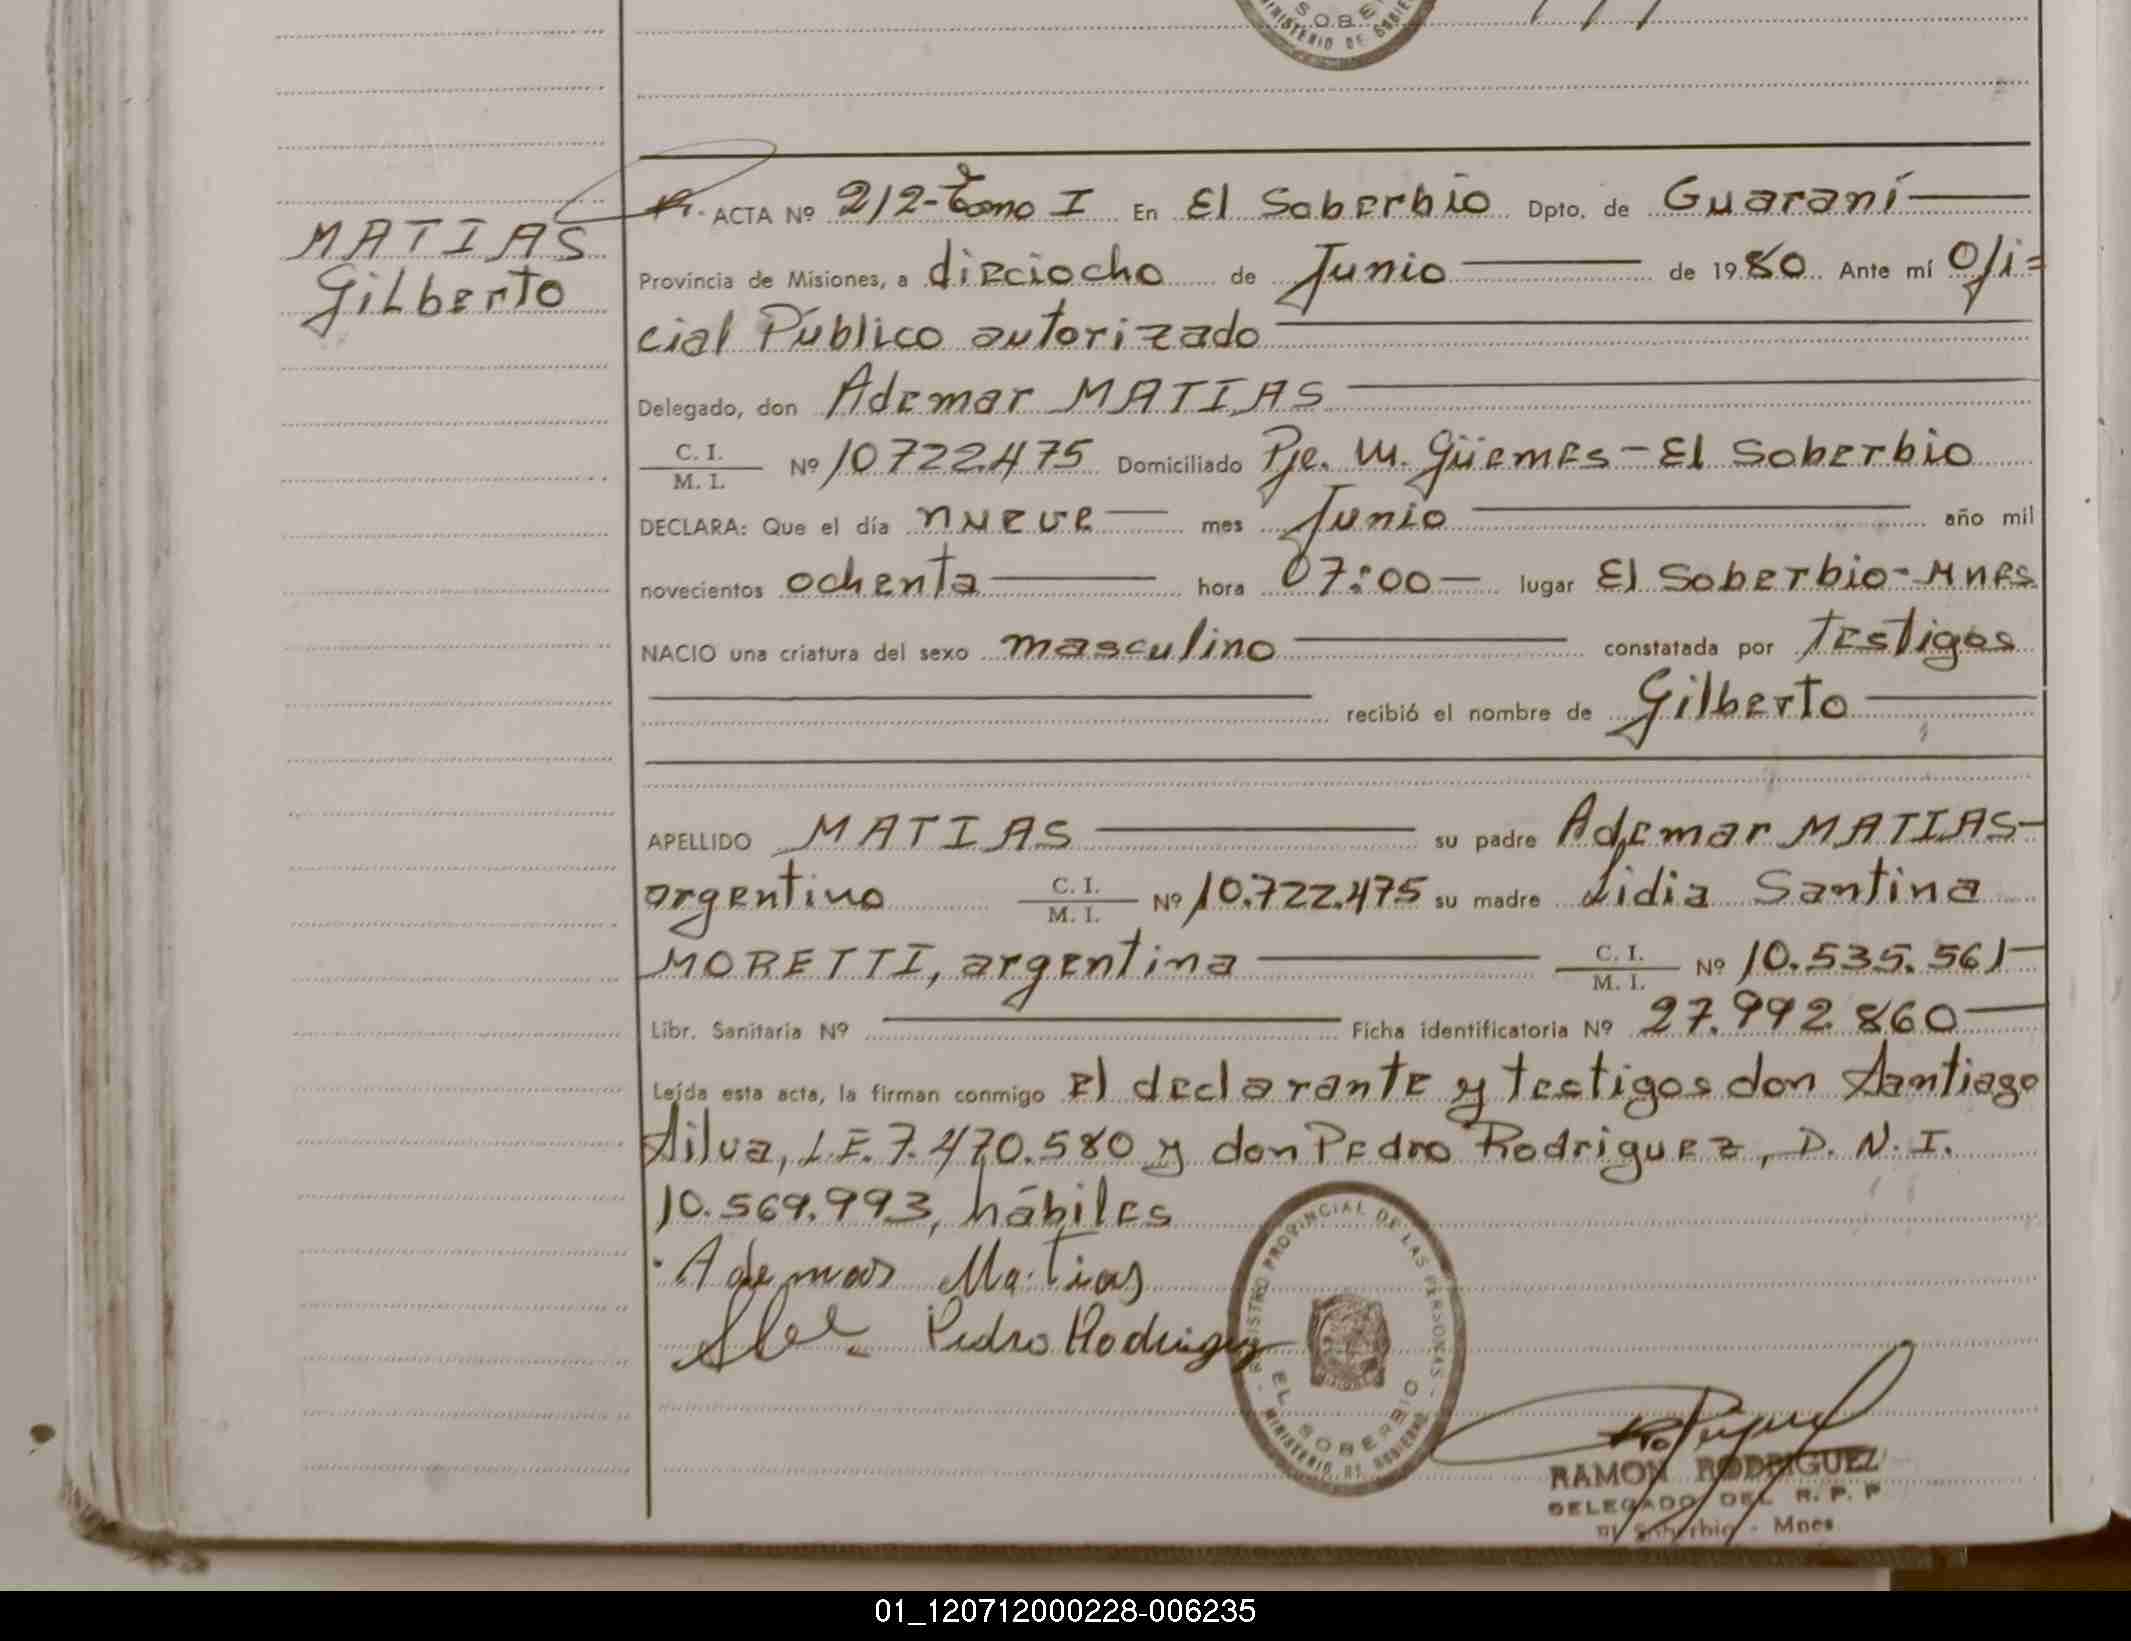 SOBE
MINISTERIO DE GOBIE
MATIAS
Gilberto
ACTA Nº 212-Tomo I En El Soberbio Dpto. de Guaraní
Provincia de Misiones, a dieciocho de Junio de 1980. Ante mí Ofi=
cial Público autorizado
Delegado, don Ademar MATIAS
C. I.
M. I.
Nº 10722.475 Domiciliado Pje. M. Güemes-El Soberbio
DECLARA: Que el día nueve mes Junio año mil
novecientos ochenta hora 07:00 lugar El Soberbio-Mnes.
NACIO una criatura del sexo masculino constatada por testigos
recibió el nombre de Gilberto
APELLIDO MATIAS su padre Ademar MATIAS-
argentino C. I. M. I. Nº 10.722.475 su madre Lidia Santina
MORETTI, argentina C. I. M. I. Nº 10.535.561
Libr. Sanitaria Nº Ficha identificatoria Nº 27.992.860
Leída esta acta, la firman conmigo el declarante y testigos don Santiago
Silva, L.E. 7.470.580 y don Pedro Rodriguez, D.N.I.
10.569.993, hábiles
Ademar Matias
Pedro Rodriguez
REGISTRO PROVINCIAL DE LAS PERSONAS
EL SOBERBIO
MINISTERIO DE GOBIERNO
RAMON RODRIGUEZ
DELEGADO DEL R. P. P
El Soberbio - Mnes
01_120712000228-006235